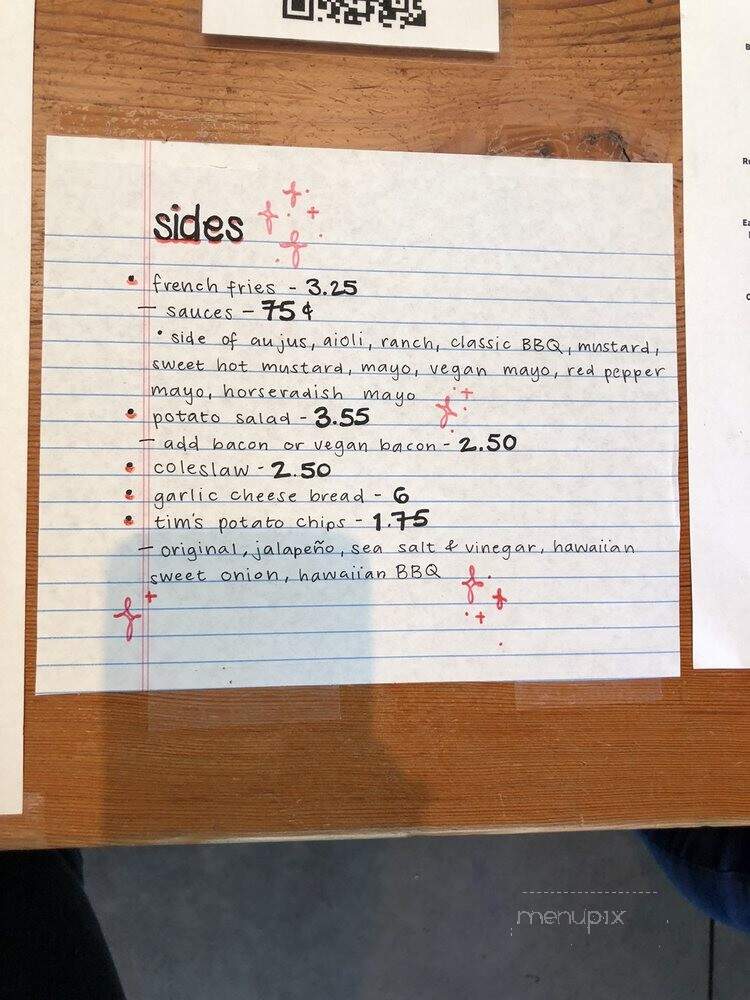 sides
• french fries - 3.25
- sauces - 75¢
• side of au jus, aioli, ranch, classic BBQ, mustard,
sweet hot mustard, mayo, vegan mayo, red pepper
mayo, horseradish mayo
• potato salad - 3.55
- add bacon or vegan bacon - 2.50
• coleslaw - 2.50
• garlic cheese bread - 6
• tim's potato chips - 1.75
- original, jalapeño, sea salt & vinegar, hawaiian
sweet onion, hawaiian BBQ
menupix